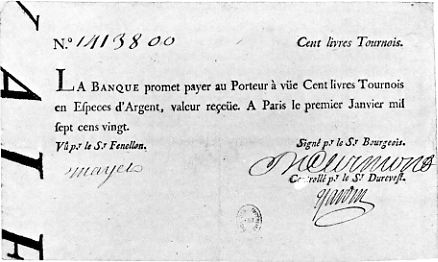 N.º 1413800 Cent livres Tournois.
LA BANQUE promet payer au Porteur à vüe Cent livres Tournois
en Especes d'Argent, valeur reçeüe. A Paris le premier Janvier mil
sept cens vingt.
Vû p.r le S.r Fenellon. Signé p.r le S.r Bourgeois.
mayet
Controllé p.r le S.r Durevest.